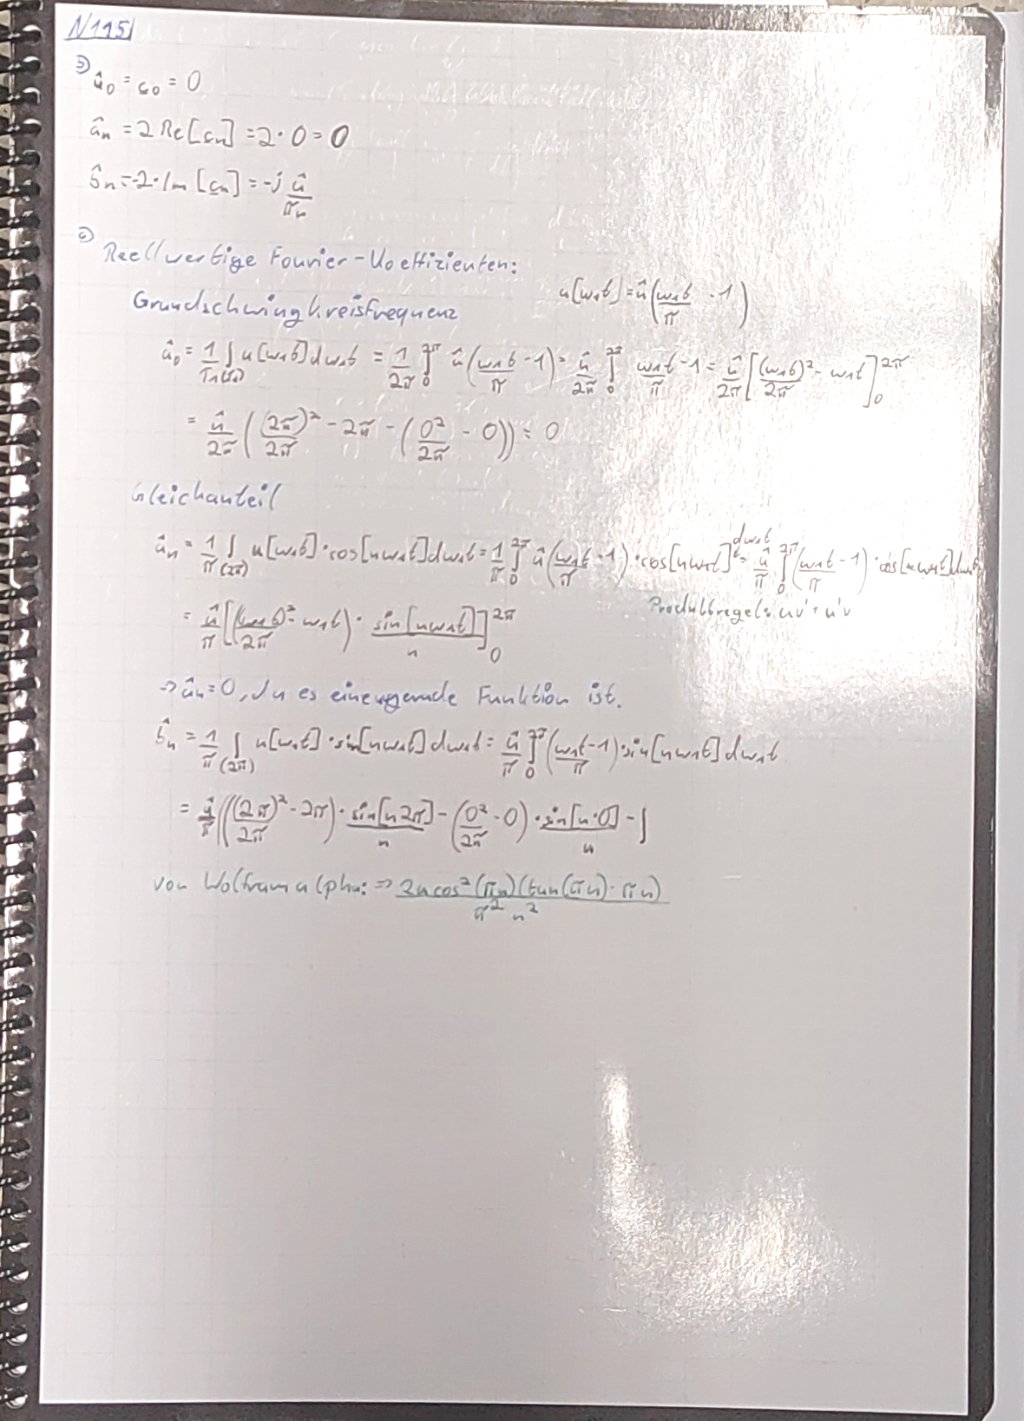 N115
b)
û₀ = c₀ = 0
âₙ = 2 Re[cₙ] = 2·0 = 0
b̂ₙ = -2·Im[cₙ] = -j û/πn
c)
Reellwertige Fourier-Koeffizienten:
u[ω₁t] = û(ω₁t/π - 1)
Grundschwingkreisfrequenz
û₀ = 1/T₁ ∫ u[ω₁t]dω₁t = 1/2π ∫₀^2π û(ω₁t/π - 1) = û/2π ∫₀^2π ω₁t/π - 1 = û/2π [(ω₁t)²/2π - ω₁t]₀^2π
= û/2π ((2π)²/2π - 2π - (0²/2π - 0)) = 0
Gleichanteil
âₙ = 1/π ∫(2π) u[ω₁t]·cos[nω₁t]dω₁t = 1/π ∫₀^2π û(ω₁t/π - 1)·cos[nω₁t] dω₁t = û/π ∫₀^2π (ω₁t/π - 1)·cos[nω₁t]dω₁t
Produktregel: uv' + u'v
= û/π [((ω₁t)²/2π - ω₁t)·sin[nω₁t]/n]₀^2π
⇒ âₙ = 0, da es eine ungerade Funktion ist.
b̂ₙ = 1/π ∫(2π) u[ω₁t]·sin[nω₁t]dω₁t = û/π ∫₀^2π (ω₁t/π - 1)·sin[nω₁t]dω₁t
= û/π (((2π)²/2π - 2π)·sin[n2π]/n - (0²/2π - 0)·sin[n·0]/n - ∫
von Wolframalpha: ⇒ 2u cos²(πn)(tan(πn) - πn)/π² n²